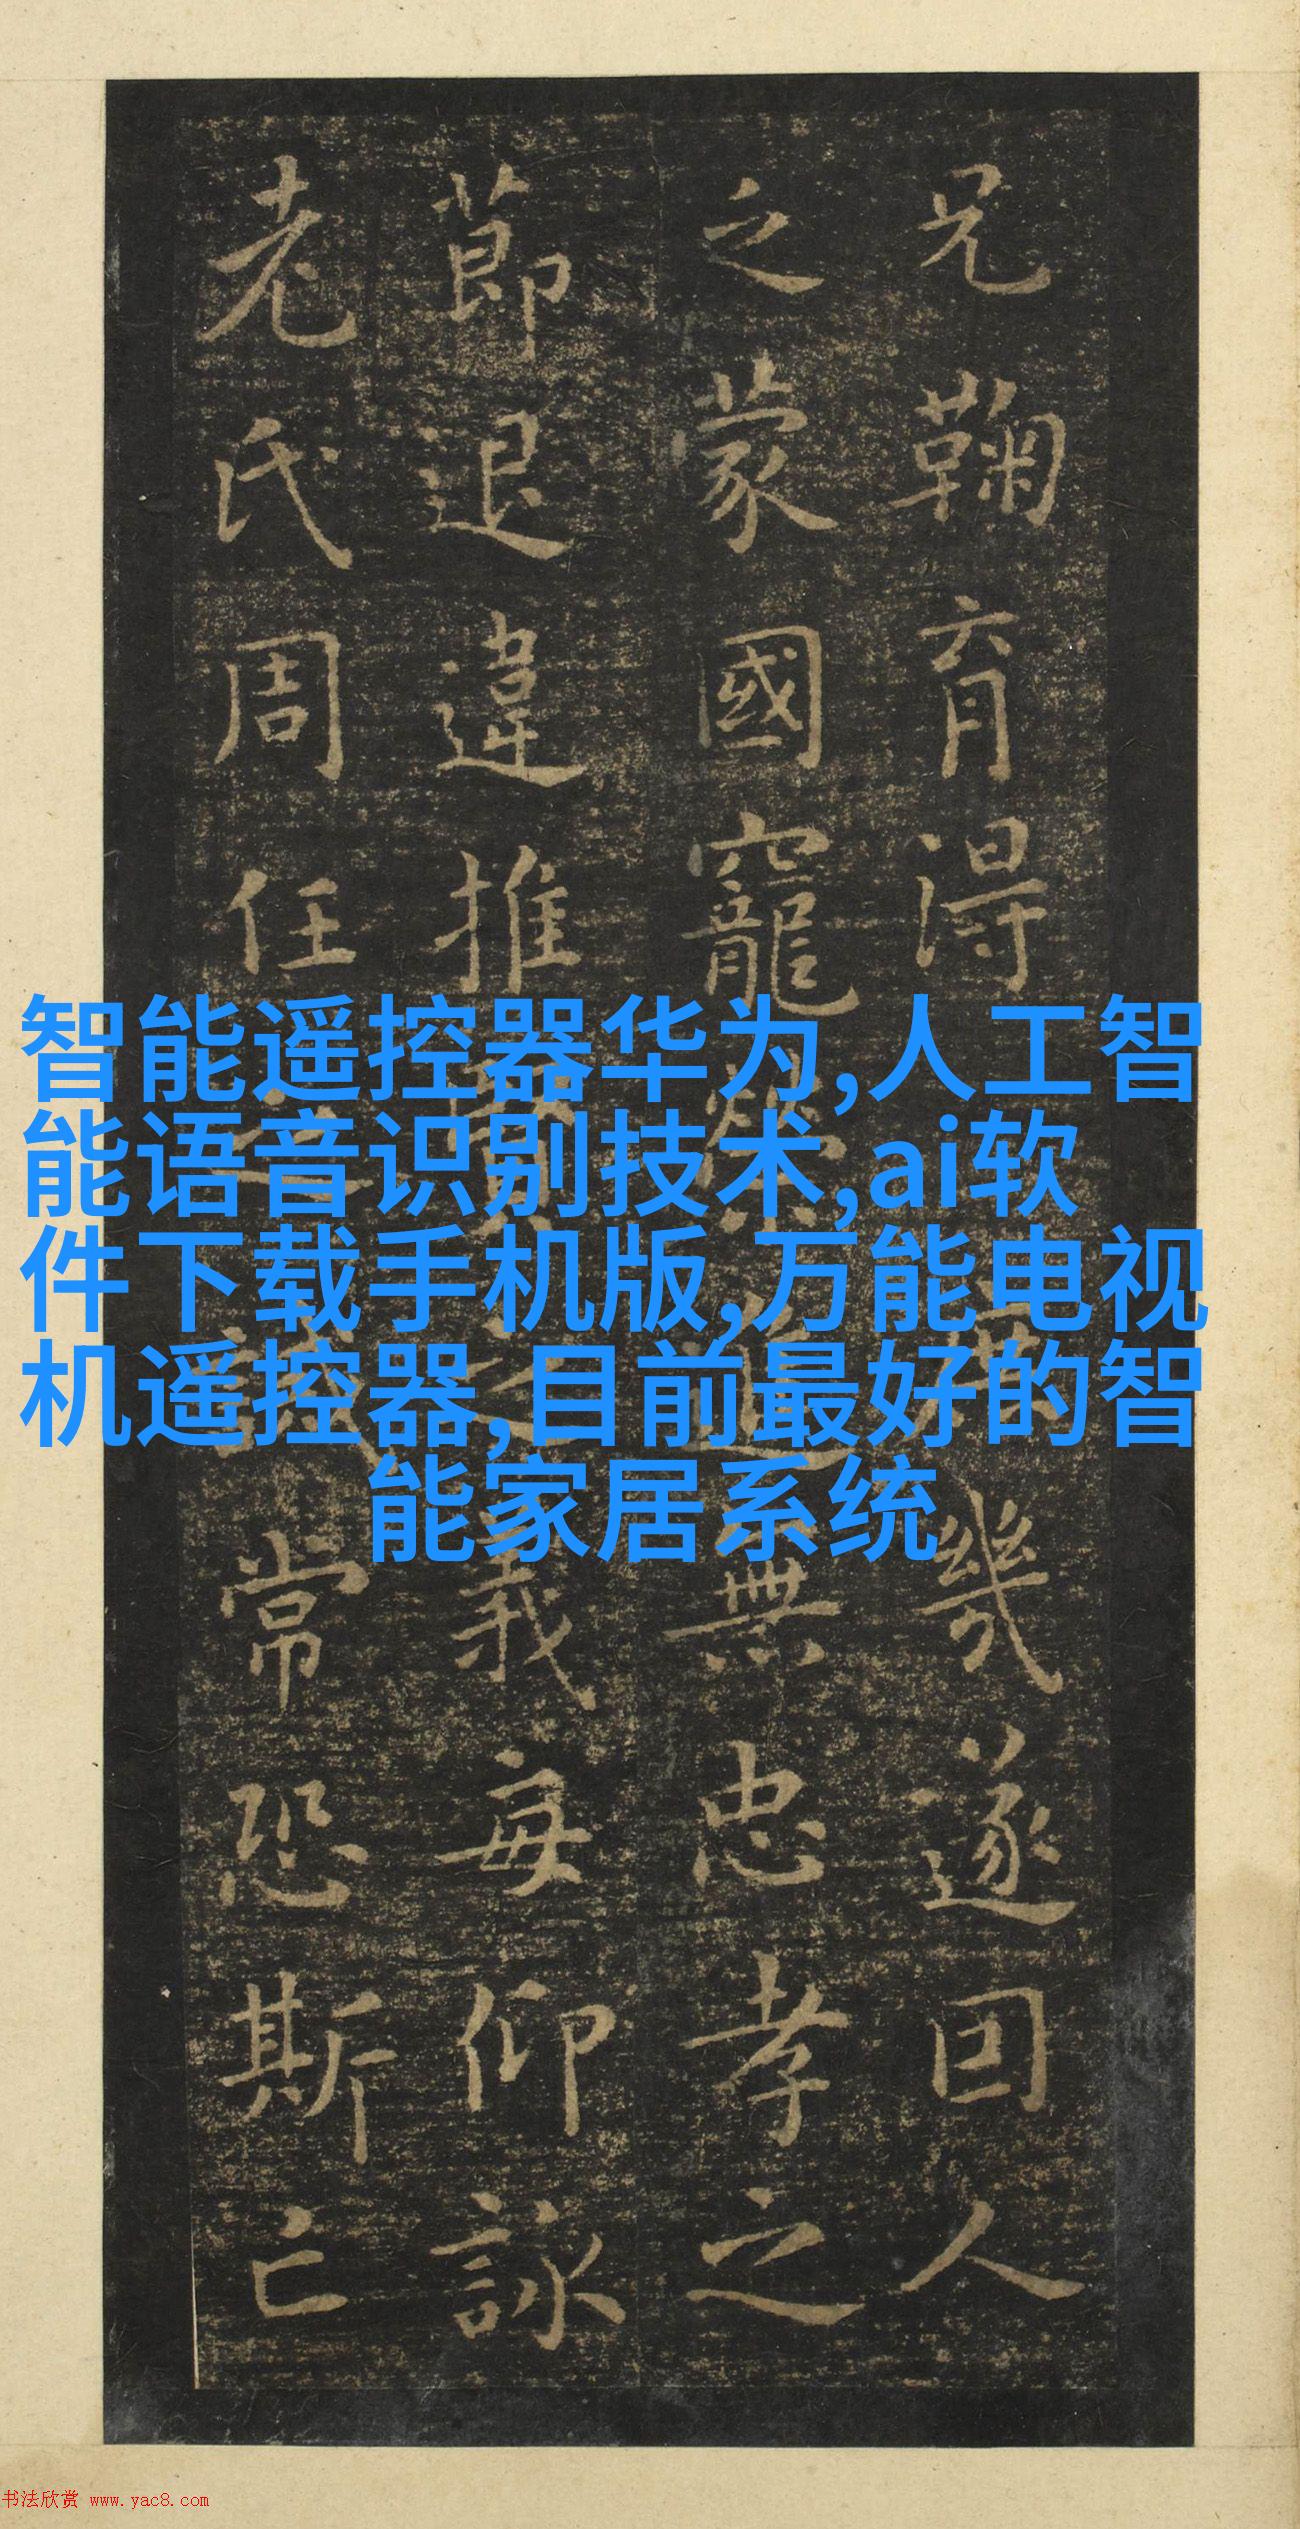 兄鞠育得幾遂因人
之蒙國寵榮進無忠孝之
莭退違推賢之義每仰詠
老氏周任之誡常恐斯亡
智能遥控器华为,人工智
能语音识别技术,ai软
件下载手机版,万能电视
机遥控器,目前最好的智
能家居系统
书法欣赏 www.yac8.com